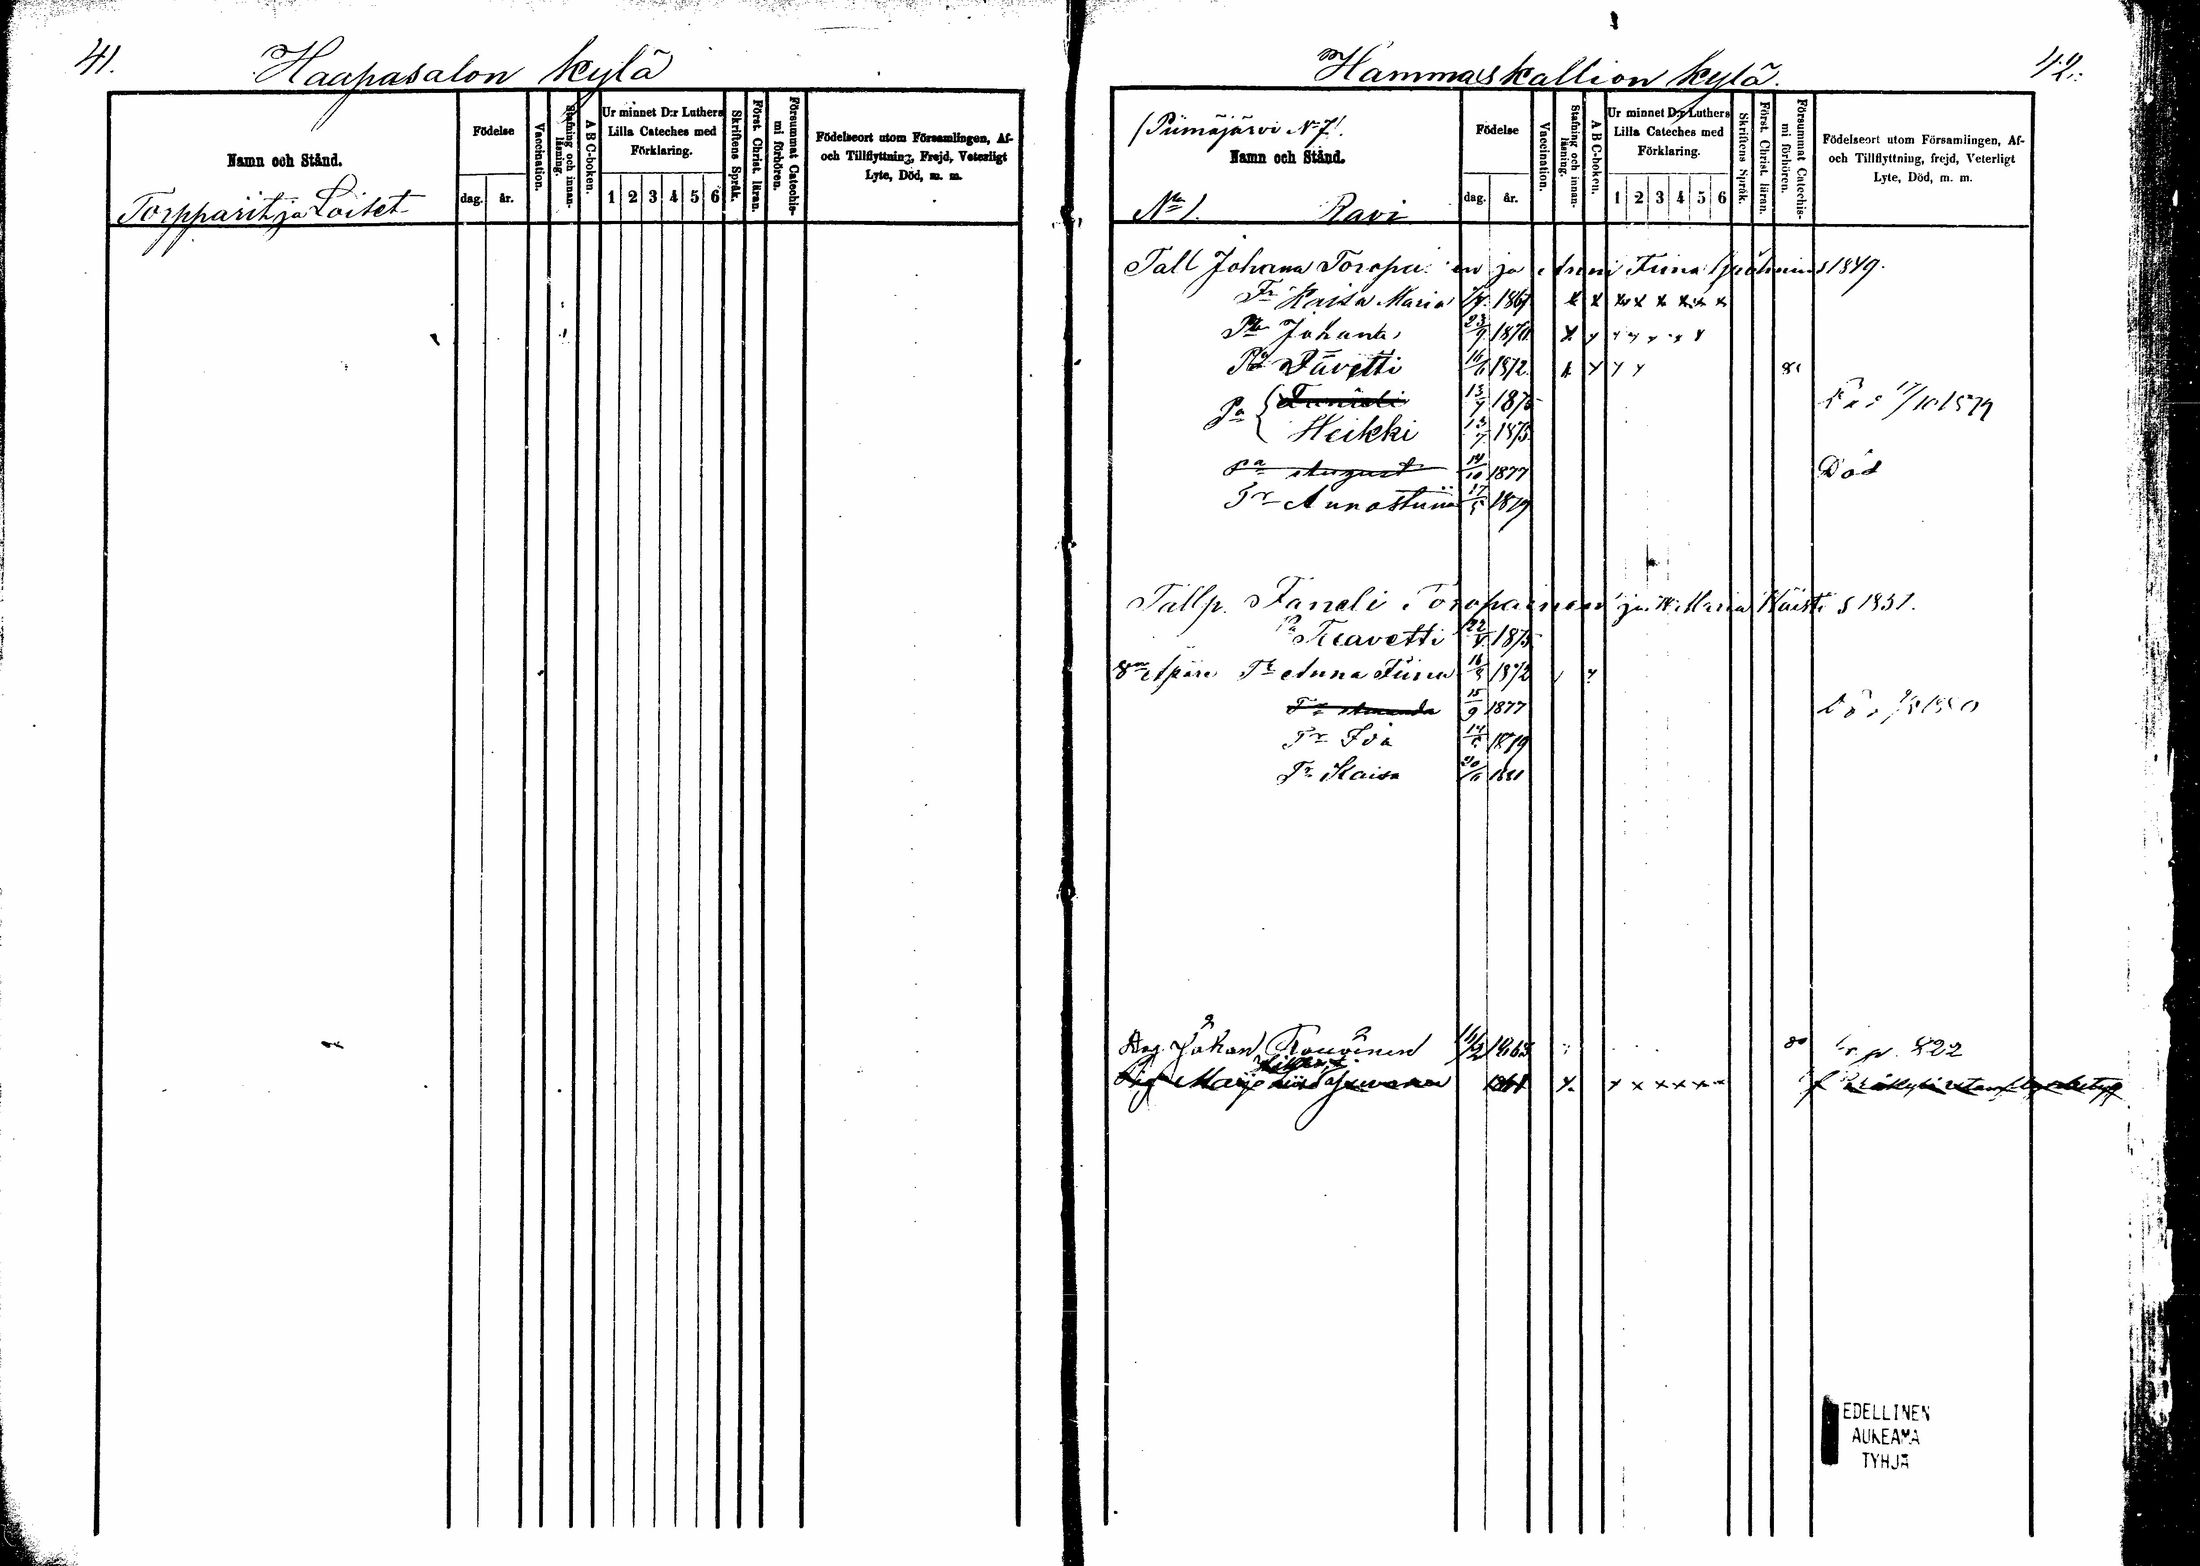 41.
Haapasalon kylä
Namn och Stånd.
Födelse
dag.
år.
Vaccination.
Stafning och innan-
läsning.
A B C-boken.
Ur minnet D:r Luthers
Lilla Cateches med
Förklaring.
1 2 3 4 5 6
Skriftens Språk.
Först. Christ. läran.
Försummat Catechis-
mi förhören.
Födelseort utom Församlingen, Af-
och Tillflyttning, Frejd, Veterligt
Lyte, Död, m. m.
Torpparit ja Loiset
Hammaskallion kylä.
42.
(Piimäjärvi N:o 7).
Namn och Stånd.
Födelse
dag.
år.
Vaccination.
Stafning och innan-
läsning.
A B C-boken.
Ur minnet D:r Luthers
Lilla Cateches med
Förklaring.
1 2 3 4 5 6
Skriftens Språk.
Först. Christ. läran.
Försummat Catechis-
mi förhören.
Födelseort utom Församlingen, Af-
och Tillflyttning, frejd, Veterligt
Lyte, Död, m. m.
N:o 1. Ravi
Tall Johana Toropainen ja Anni Tiina 1849.
Tr Kaisa Maria 1867
Pa Johana 23/9 1870
Pa Pavetti 16/6 1872 81
Pa Tanieli 13/7 1875 17/10 1879
Heikki 13/7 1875
Pa August 14/10 1877 Död
Tr Annastiina 17/5 1879
Tallp. Taneli Toropainen ja Maria s 1851.
Pa Taavetti 22/ 1875
Tr Anna Tiina 16/ 1872
Tr Amanda 15/9 1877 1880
Tr Ida 14/ 1879
Tr Kaisa 20/ 1881
Johan 1863 80 p. 822
EDELLINEN
AUKEAMA
TYHJÄ